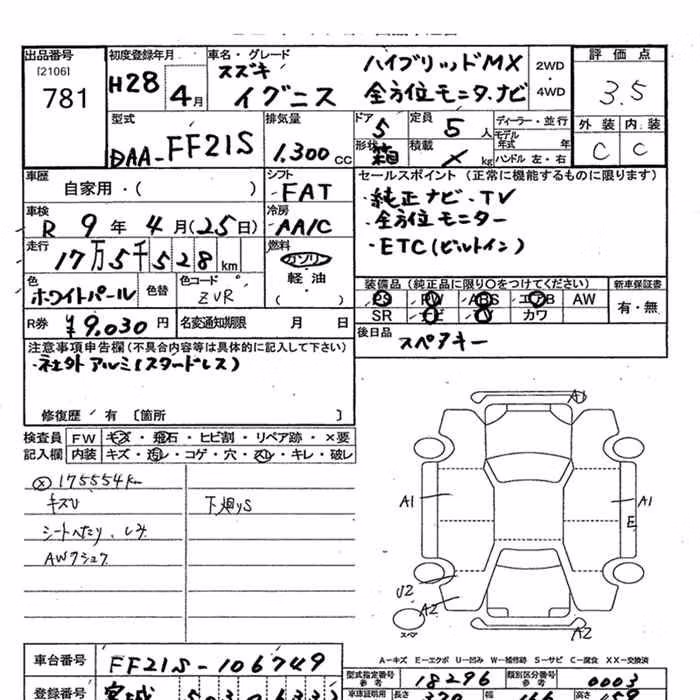 出品番号
[2106]
781
初度登録年月
H28 4月
車名・グレード
スズキ
イグニス
ハイブリッドMX
全方位モニタ.ナビ
2WD
・
4WD
評価点
3.5
外装 内装
C C
型式
DAA-FF21S
排気量
1.300 CC
ドア 5
定員 5 人
形状 箱
積載 kg
ディーラー・並行
モデル
年式 年
ハンドル 左・右
車歴
自家用・( )
シフト
FAT
車検
R 9年 4月(25日)
冷房
AA/C
走行
17万5千528km
燃料
ガソリン
軽油
( )
色
ホワイトパール
色替
色コード
ZVR
R券 ¥9.030円
名変通知期限 月 日
セールスポイント(正常に機能するものに限ります)
・純正ナビ・TV
・全方位モニター
・ETC(ビルトイン)
装備品(純正品に限り○をつけてください)
新車保証書
PS PW ABS エアB AW
SR ナビ TV カワ
有・無
後日品
スペアキー
注意事項申告欄(不具合内容等は具体的に記入して下さい)
・社外アルミ(スタッドレス)
修復歴 有 〔箇所 〕
検査員 FW キズ・飛石・ヒビ割・リペア跡・×要
記入欄 内装 キズ・汚レ・コゲ・穴・スレ・キレ・破レ
175554km
キズU
下廻りS
シートへたり、しみ
A1
A1
A1
E
U2
A2
A2
スペア
A-キズ E-エクボ U-凹み W-補修跡 S-サビ C-腐食 XX-交換済
車台番号
FF21S-106749
型式指定番号
参考
18296
類別区分番号
参考
0003
登録番号
宮城
車庫証明用
長さ
370
幅
166
高さ
159